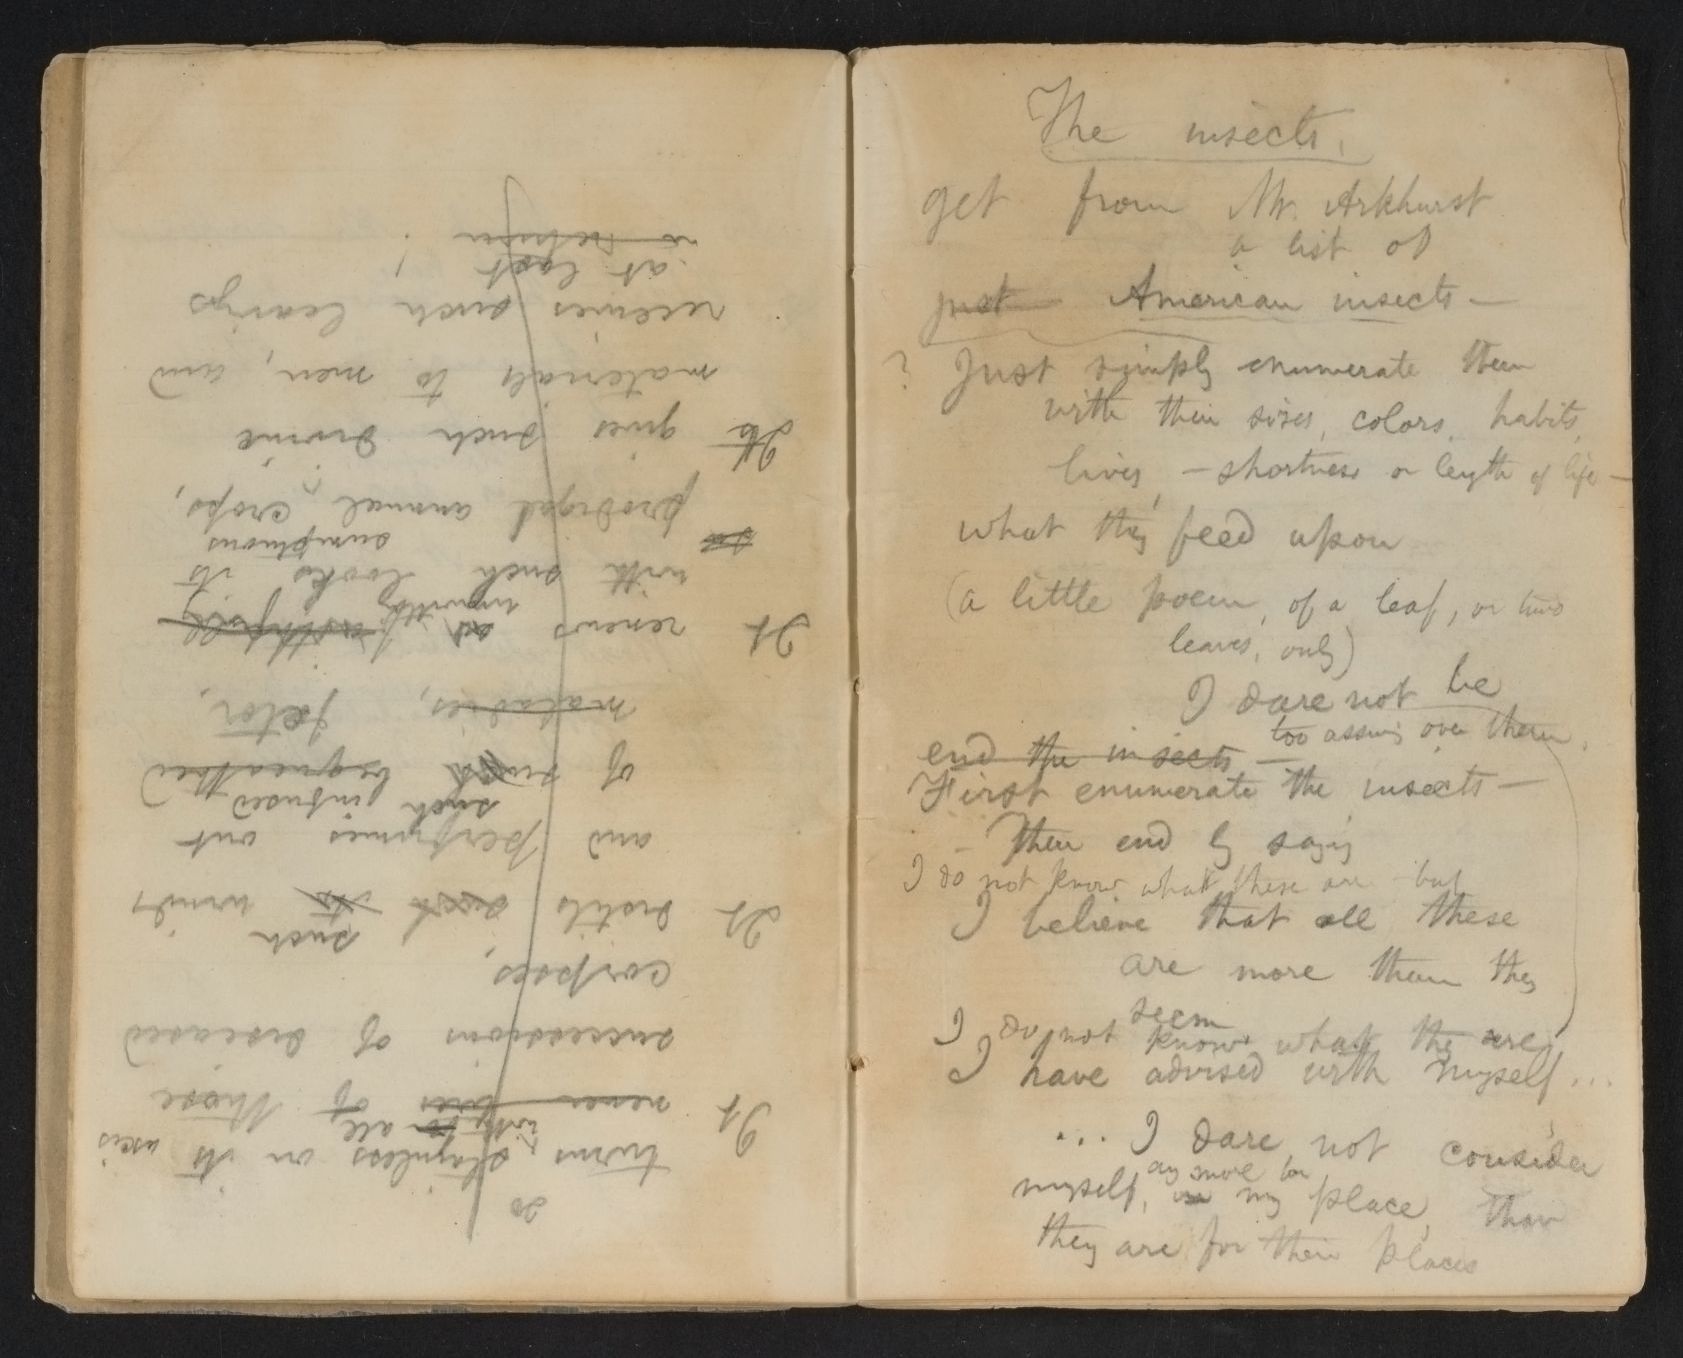 The insects.
get from Mr. Arkhurst
a list of
just American insects —
? Just simply enumerate them
with their sizes, colors, habits,
lives, — shortness or length of life —
what they feed upon
(a little poem, of a leaf, or two
leaves, only)
I dare not be
too assuming over them.
end the insects —
First enumerate the insects —
– Then end by saying
I do not know what these are but
I believe that all these
are more than they
seem
I do not know what they are
I have advised with myself ...
... I dare not consider
any more for
myself, in my place, than
they are for their places
20
turns stainless on its axis
with for all
It never dies of those
successions of diseased
corpses,
such
It distils such its winds
and perfumes out
such infused
of such bequeathed
maladies, fetor,
It renews as faithfully
unwittingly
with such looks its
sumptuous
prodigal annual crops,
Its gives such divine
materials to men, and
receives such leavings
at last !
in return !